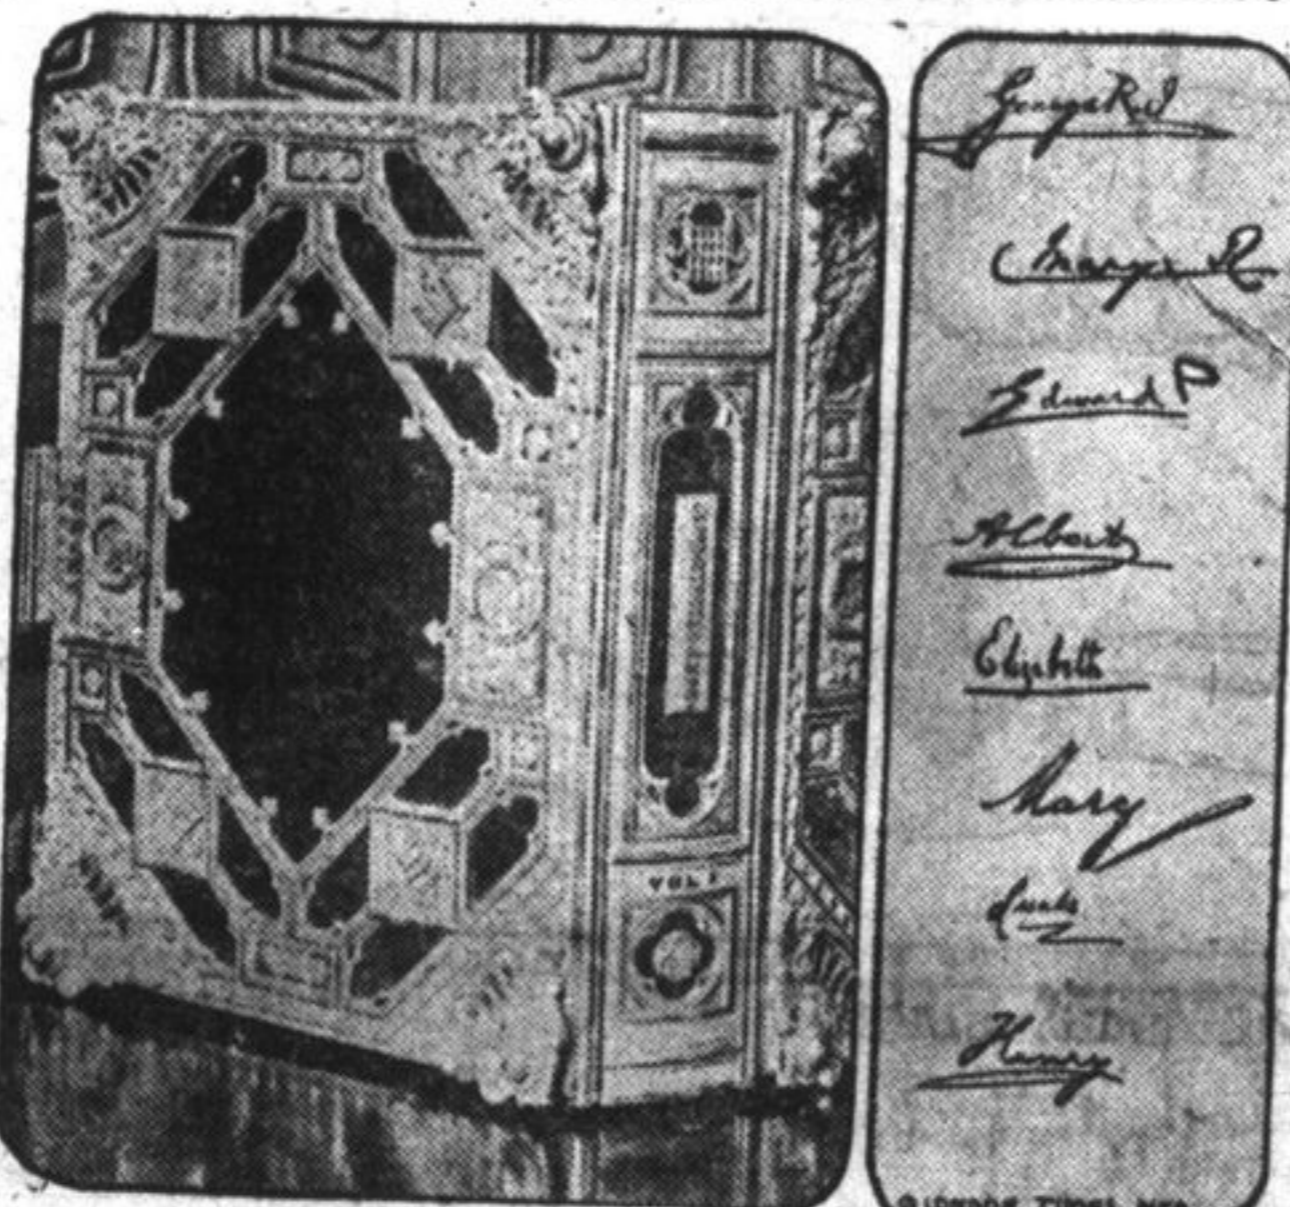 VOL I
George R.I
Mary R
Edward P
Albert
Elizabeth
Mary
Henry